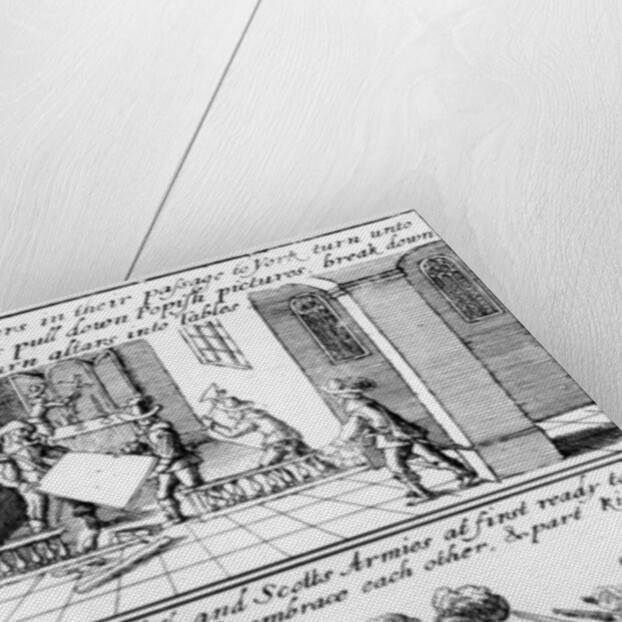 ers in their paſsage to York turn unto
pull down Popiſh pictures, break down
turn altars into Tables
and Scotts Armies at first ready to
embrace each other, & part